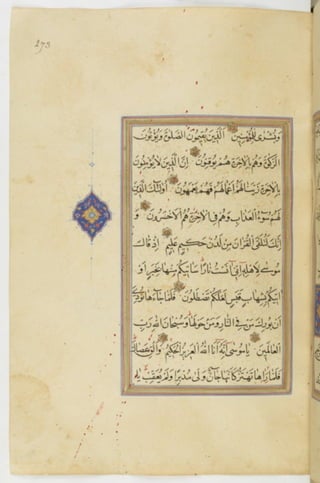 وَبُشْرٰى لِلْمُؤْمِنِينَ الَّذِينَ يُقِيمُونَ الصَّلٰوةَ وَيُؤْتُونَ
الزَّكٰوةَ وَهُمْ بِالْاٰخِرَةِ هُمْ يُوقِنُونَ اِنَّ الَّذِينَ لَا يُؤْمِنُونَ
بِالْاٰخِرَةِ زَيَّنَّا لَهُمْ اَعْمَالَهُمْ فَهُمْ يَعْمَهُونَ اُولٰئِكَ الَّذِينَ
لَهُمْ سُوءُ الْعَذَابِ وَهُمْ فِي الْاٰخِرَةِ هُمُ الْاَخْسَرُونَ وَ
اِنَّكَ لَتُلَقَّى الْقُرْاٰنَ مِنْ لَدُنْ حَكِيمٍ عَلِيمٍ اِذْ قَالَ
مُوسٰى لِاَهْلِهِ اِنِّي اٰنَسْتُ نَارًا سَاٰتِيكُمْ مِنْهَا بِخَبَرٍ اَوْ
اٰتِيكُمْ بِشِهَابٍ قَبَسٍ لَعَلَّكُمْ تَصْطَلُونَ فَلَمَّا جَاءَهَا نُودِيَ
اَنْ بُورِكَ مَنْ فِي النَّارِ وَمَنْ حَوْلَهَا وَسُبْحَانَ اللّٰهِ رَبِّ
الْعَالَمِينَ يَا مُوسٰى اِنَّهُ اَنَا اللّٰهُ الْعَزِيزُ الْحَكِيمُ وَاَلْقِ عَصَاكَ
فَلَمَّا رَاٰهَا تَهْتَزُّ كَاَنَّهَا جَانٌّ وَلّٰى مُدْبِرًا وَلَمْ يُعَقِّبْ يَا